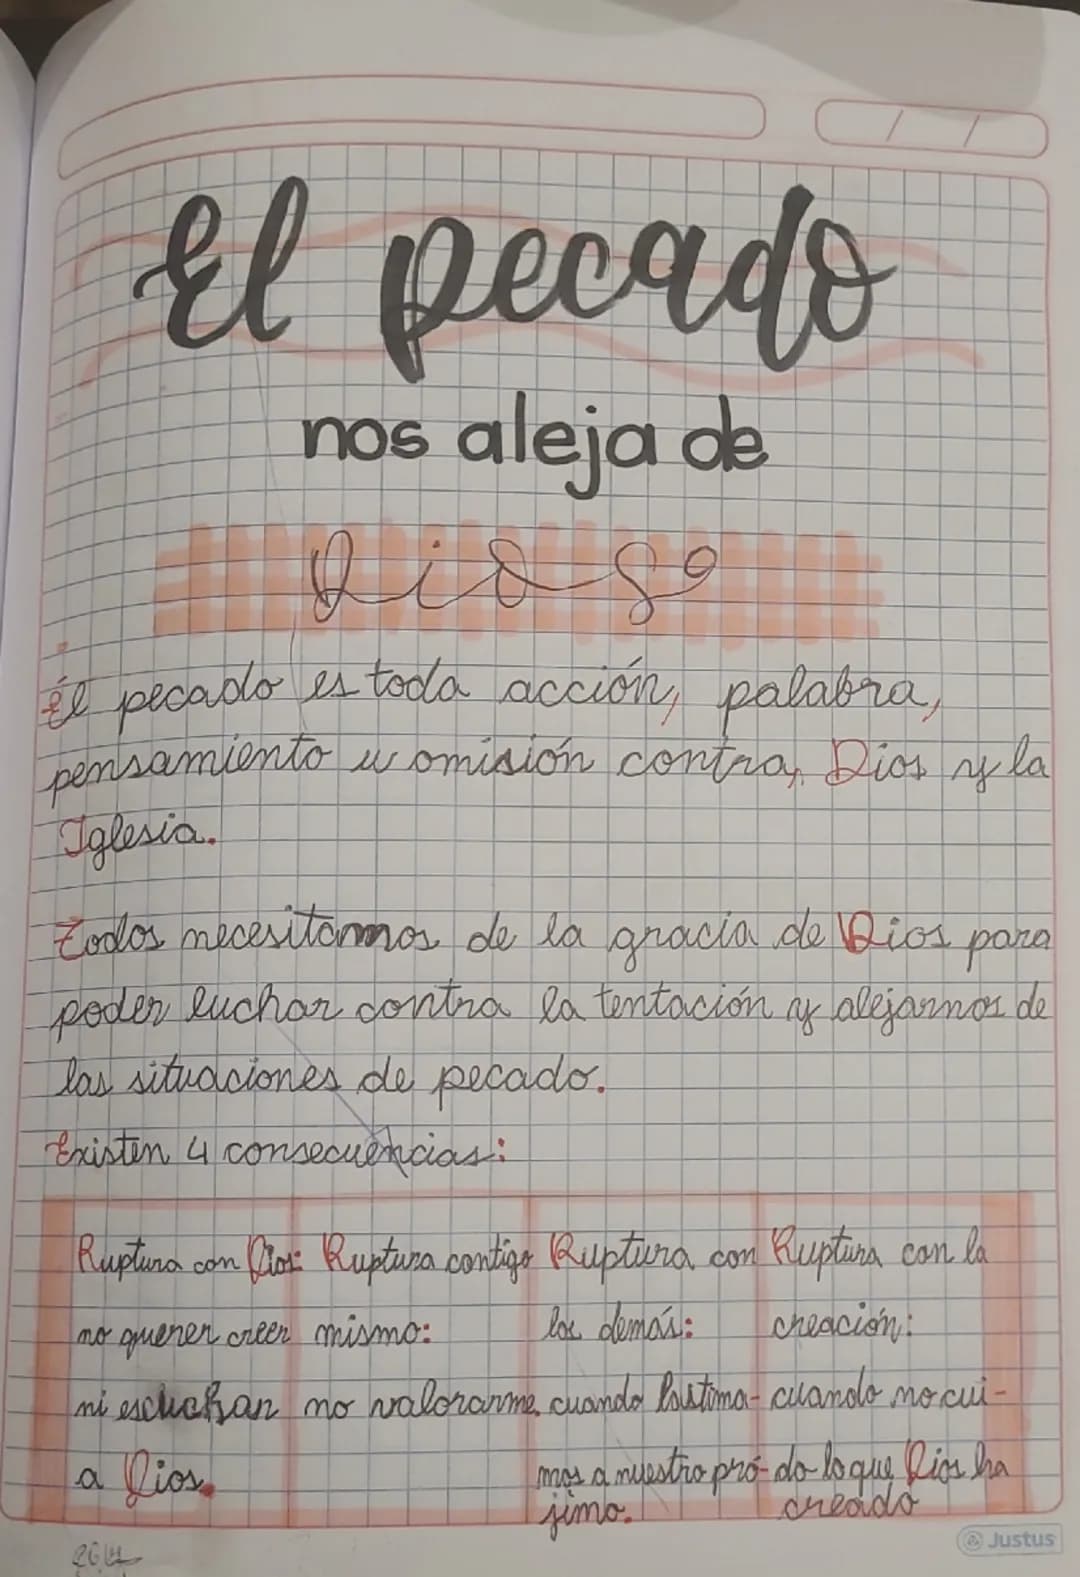 El pecado
nos aleja de
Dios
él pecado es toda acción, palabra,
pensamiento u omisión contra, Dios y la
Iglesia.
Todos necesitamos de la gracia de Dios para
poder luchar contra la tentación y alejarnos de
las situaciones de pecado.
Existen 4 consecuencias:
Ruptura con Dios:
no querer creer
ni escuchar
a Dios.
Ruptura contigo
mismo:
no valorarme.
Ruptura con
los demás:
cuando lastima-
mos a nuestro pró-
jimo.
Ruptura con la
creación:
cuando no cui-
do lo que Dios ha
creado
Justus